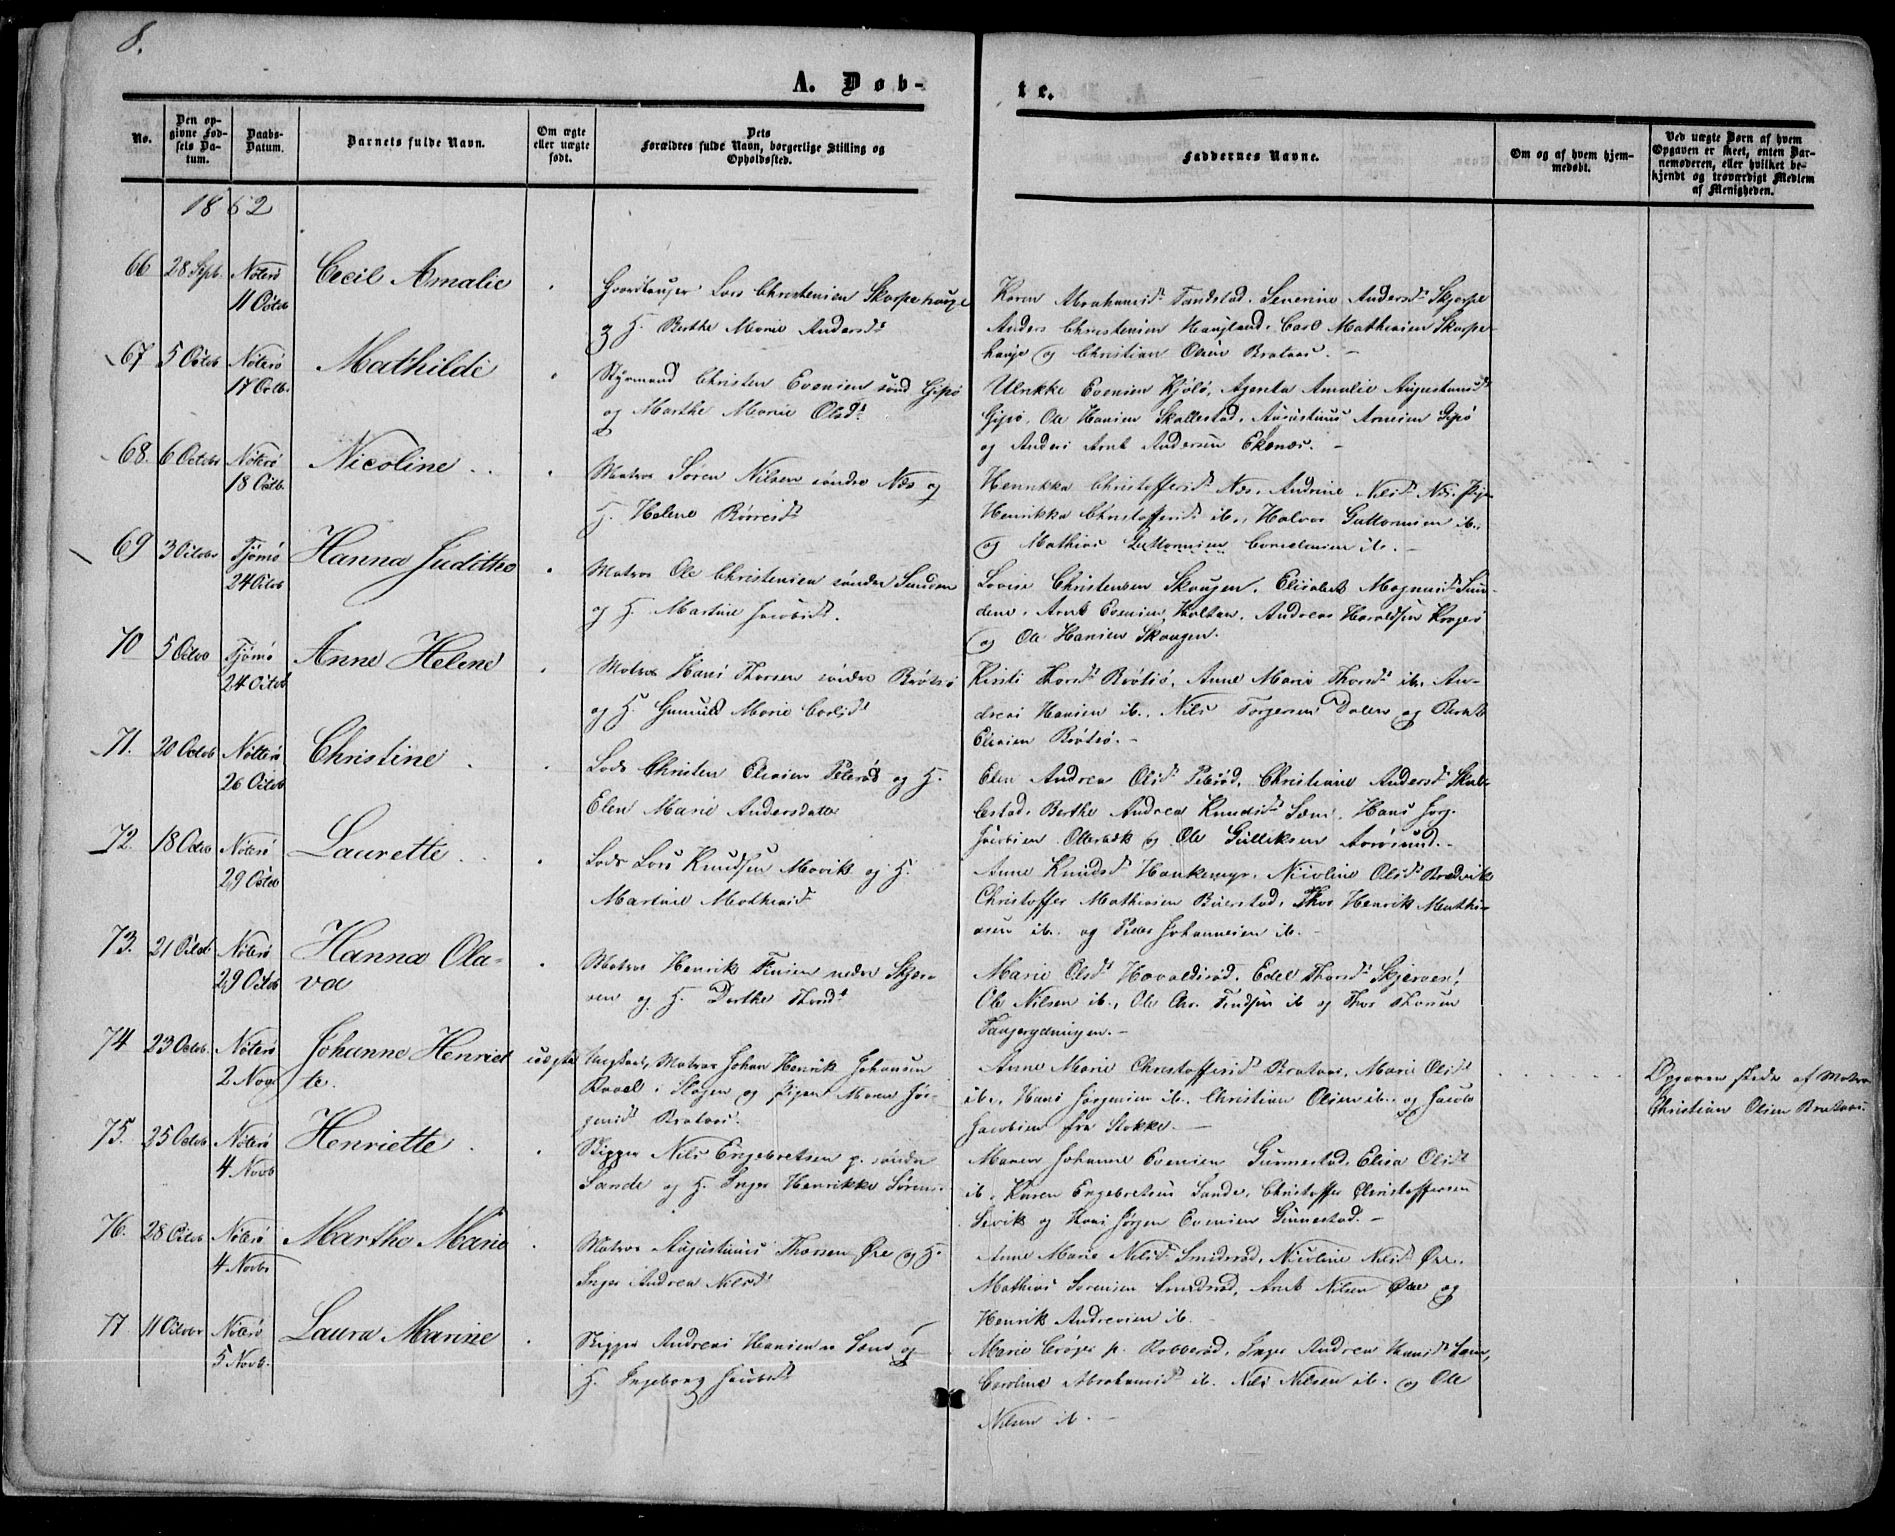 8.
A. Døb-
te.
No.
Den op-
givne Fød-
sels Da-
tum.
Daabs-
Datum.
Barnets fulde Navn.
Om ægte
eller uægte
født.
Dets
Forældres fulde Navn, borgerlige Stilling og
Opholdssted.
Faddernes Navne.
Om og af hvem hjem-
medøbt.
Ved uægte Børn af hvem
Opgaven er skeet, enten Bar-
nemoderen, eller hvilket be-
kjendt og troværdigt Medlem
af Menigheden.
1862
66 28 Sepb. Nøterø
11 Octob
Cecil Amalie
Lars Christensen Skarpehauge
og H. Berthe Marie Andersdt
Karen Abrahamsdt Fandstad, Severine Andersdt Skjerpe
Anders Christensen Haugland, Carl Mathiasen Skarpe-
hauge og Christian Olsen Brataas. -
67 5 Octob Nøterø
17 Octb.
Mathilde
Styrmand Christen Evensen Gipø
og Marthe Marie Olsdt
Ulrikke Evensen Kjølø, Agenta Amalie Augustinusdt
Gipø, Ole Hansen Skallestad, Augustinus Arnesen Gipø
og Anders Arnt Andersen Ekenæs. -
68. 6 Octobr Nøterø
18 Octb.
Nicoline
Matros Søren Nilsen søndre Næs og
H. Helene Børresdt
Henrikka Christoffersdt Næs, Andrine Nilsdt Næs, Pige
Henrikka Christoffersdt ib., Halvor Guttormsen ib.,
og Mathias Guttormsen ib. -
69 3 Octobr Tjømø
24 Octob
Hanna Judithe
Matros Ole Christensen søndre Sunden
og H. Martine Jacobsdt.
Lovise Christensen Skaugen, Elisabet Magnusdt Sun-
dene, Arnt Evensen Holtan, Andreas Haraldsen Kragerø
og Ole Hansen Skaugen.
70 5 Octob Tjømø
24 Octob
Anne Helene
Matros Hans Thorsen søndre Brøtsø
og H. Gunnild Marie Carlsdt
Kirsti Thorsdt Brøtsø, Anne Marie Thorsdt ib. An-
dreas Hansen ib., Nils Torgersen Dalen og Bernt
Eliasen Brøtsø. -
71. 20 Octob Nøtterø
26 Octob
Christine
Lods Christen Eliasen Peterød og H.
Elen Marie Andersdatter
Elen Andrea Olsdt Peterød, Christiane Andersdt Skal-
lestad, Berthe Andrea Knudsdt Sæm, Hans Jørg.
Jacobsen Ollebæk og Ole Gulliksen Arøsund. -
72. 18 Octob Nøterø
29 Octob
Laurette
Lods Lars Knudsen Movik og H.
Martine Mathiasdt
Anne Knudsdt Hankemyr, Nicoline Olsdt Bredvik
Christoffer Mathiasen Buerstad, Thor Henrik Mathi-
asen ib. og Peder Johannesen ib. -
73. 21 Octob Nøterø
29 Octob
Hanna Ola-
va
Matros Henrik Finsen nedre Skjer-
ven og H. Dorthe Thorsdt
Marie Olsdt Havaldsrød, Edel Thorsdt Skjerven,
Ole Nilsen ib., Ole Chr. Findsen ib og Thor Thorsen
74 23 Octob. Nøterø
2 Nov
Johanne Henriet-
te.
uægte
Ungkarl, Matros Johan Henrik Johansen
Ravel i Slagen og Pigen Maren Jør-
gensdt Brataas.
Anne Marie Christoffersdt Brataas, Marie Olsdt
ib., Hans Jørgensen ib., Christian Olsen ib. og Jacob
Jacobsen fra Stokke. -
Opgaven skede af Matros
Christian Olsen Brataas.
75. 25 Octob Nøterø
4 Novb
Henriette
Skipper Nils Engebretsen p. søndre
Sande og H. Inger Henrikke Sørens.
Maren Johanne Evensen Gunnestad, Elisa Olsdt
ib., Karen Engebretsen Sande, Christoffer Christoffersen
Sevik og Hans Jørgen Evensen Gunnestad. -
76. 28 Octob Nøterø
4 Novbr
Marthe Marie
Matros Augustinus Thorsen Øre og H.
Inger Andrea Nilsdt
Anne Marie Nilsdt Smidsrød, Nicoline Nilsdt Øre,
Mathias Sørensen Smidsrød, Arnt Nilsen Øre og
Henrik Andresen ib.
77 11 Octobr Nøterø
5 Novb.
Laura Marine
Skipper Andreas Hansen Sæm og
H. Ingeborg Jacobsdt
Marie Crøger p. Robberød, Inger Andrea Hansdt Sæm,
Caroline Abrahamsdt ib. Nils Nilsen ib. og Ole
Nilsen ib. -